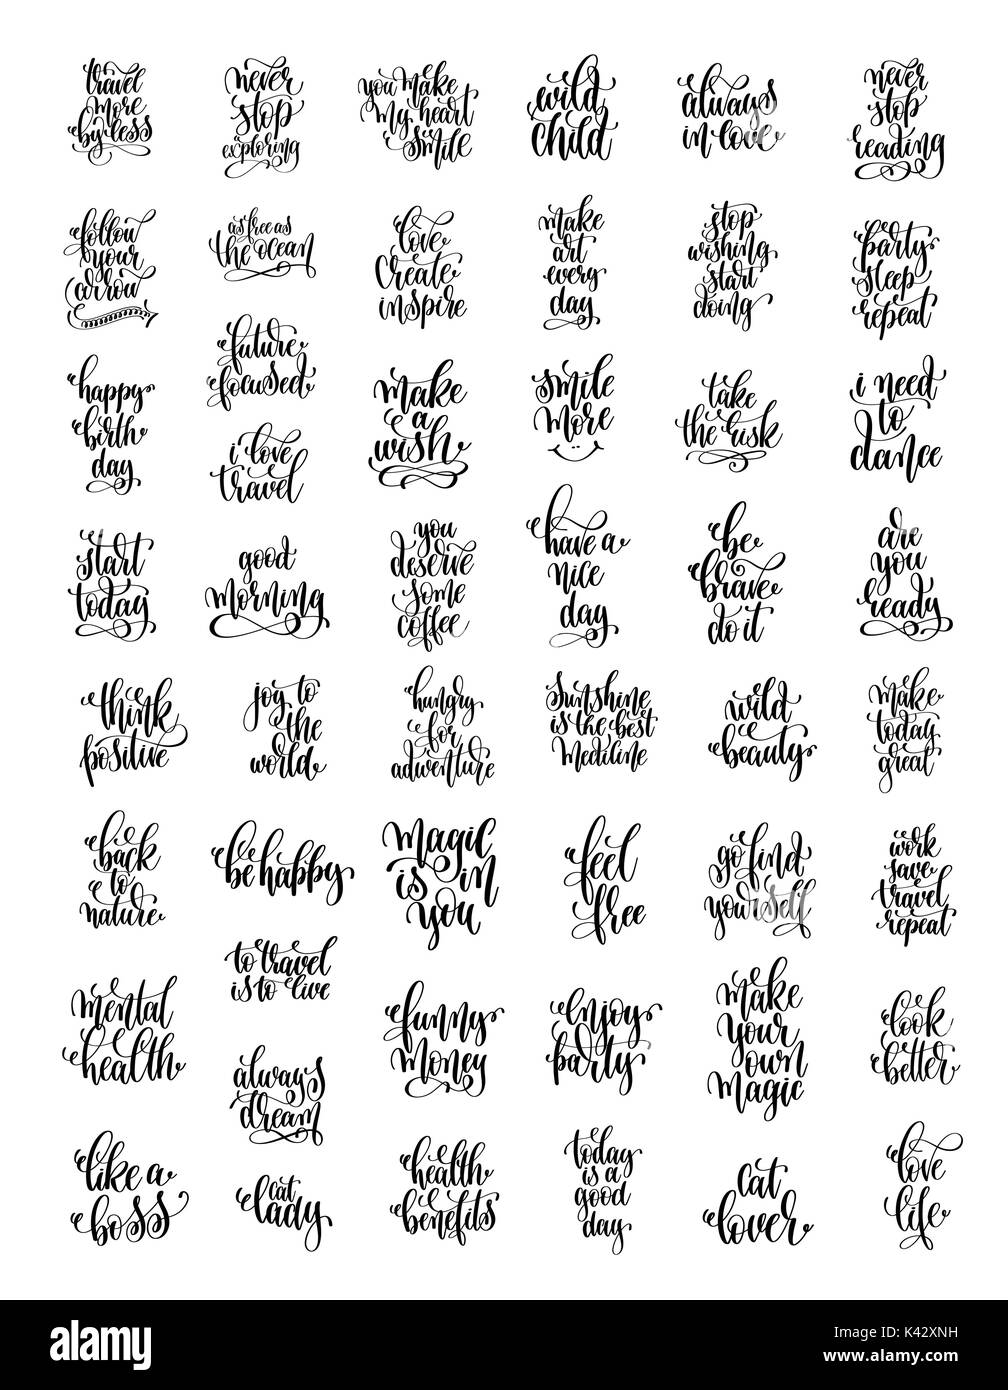 travel
more
by less
never
stop
exploring
you make
my heart
smile
wild
child
always
in love
never
stop
reading
follow
your
arrow
as free as
the ocean
love
create
inspire
make
art
every
day
stop
wishing
start
doing
party
sleep
repeat
happy
birth
day
future
focused
i love
travel
make
a
wish
smile
more
take
the risk
i need
to
dance
start
today
good
morning
you
deserve
some
coffee
have a
nice
day
be
brave
do it
are
you
ready
think
positive
joy to
the
world
hungry
for
adventure
sunshine
is the best
medicine
wild
beauty
make
today
great
back
to
nature
be happy
magic
is in
you
feel
free
go find
yourself
work
save
travel
repeat
mental
health
to travel
is to live
always
dream
funny
money
enjoy
party
make
your
own
magic
look
better
like a
boss
cat
lady
health
benefits
today
is a
good
day
cat
lover
love
life
alamy stock photo
K42XNH
www.alamy.com